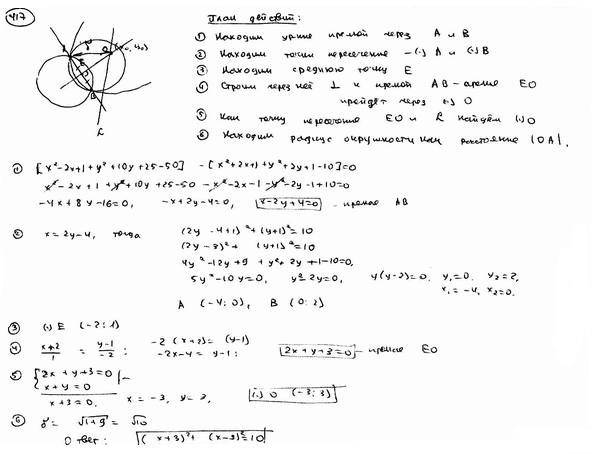 417
План действий:
① Находим ур-ние прямой через A и B
② Находим точки пересечение – (·) A и (·) B
③ Находим среднюю точку E
④ Строим через неё ⊥ к прямой AB – прямая EO
пройдёт через (·) O
⑤ Как точку пересечения EO и ℓ найдём (·) O
⑥ Находим радиус окружности как расстояние |OA|.
① [x²-2x+1+y²+10y+25-50] - [x²+2x+1+y²+2y+1-10]=0
x²-2x+1+y²+10y+25-50-x²-2x-1-y²-2y-1+10=0
-4x+8y-16=0, -x+2y-4=0, x-2y+4=0 – прямая AB
② x=2y-4, тогда (2y-4+1)²+(y+1)²=10
(2y-3)²+(y+1)²=10
4y²-12y+9+y²+2y+1-10=0,
5y²-10y=0, y²-2y=0, y(y-2)=0. y₁=0. y₂=2,
x₁=-4, x₂=0.
A (-4;0), B (0;2)
③ (·) E (-2;1)
④ x+2/1 = y-1/-2; -2(x+2)=(y-1) 2x+y+3=0 – прямая EO
-2x-4=y-1;
⑤ {2x+y+3=0
x+y=0 | –
x+3=0, x=-3, y=3, (·) O (-3;3)
⑥ r= √1+9 = √10
Ответ: (x+3)²+(x-3)²=10